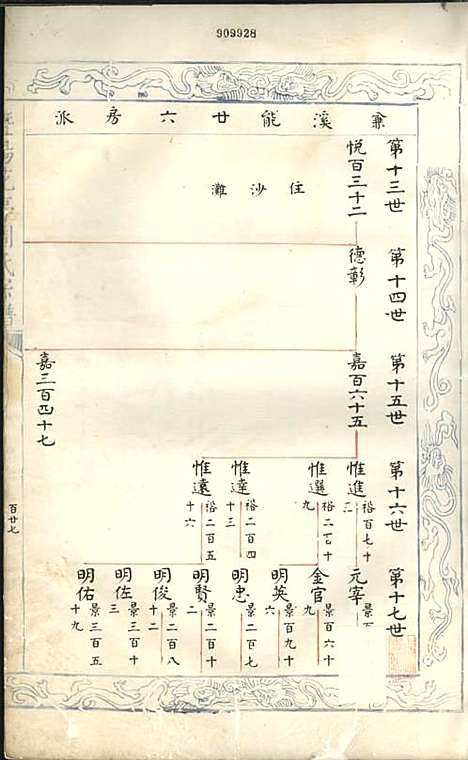 909928
兼溪能廿六房派
第十三世
悦百三十二
住沙灘
第十四世
德彰
第十五世
嘉百六十五
嘉三百四十七
第十六世
惟進 裕百七十三
惟選 裕二百十九
惟達 裕二百四十三
惟遠 裕二百五十六
第十七世
元宰 景
金官 景百六十九
明英 景百九十六
明忠 景二百七
明賢 景二百十二
明俊 景二百八十二
明佐 景三百十三
明佑 景三百五十九
百廿七